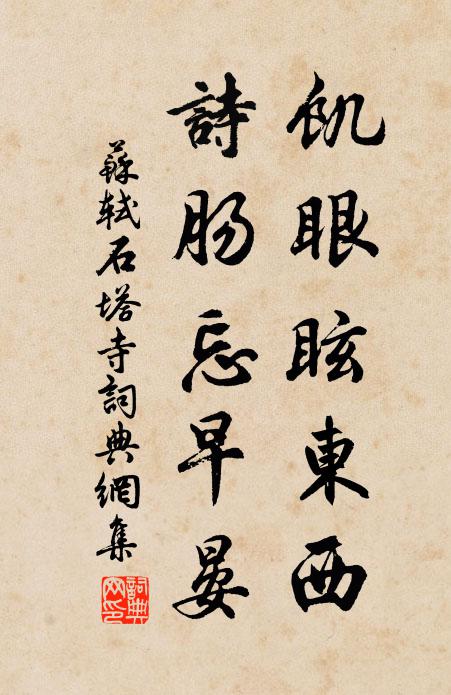 飢眼眩東西
詩腸忘早晏
蘇軾石塔寺詞典網集
詞典网印